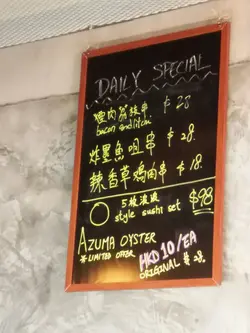 DAILY SPECIAL
煙肉荔枝串 $28
bacon and litchi
炸墨魚咀串 $28.
辣香草鸡肉串 $18.
5枚
style sushi set $98
AZUMA OYSTER
※ LIMITED OFFER HKD 10/EA
ORIGINAL $